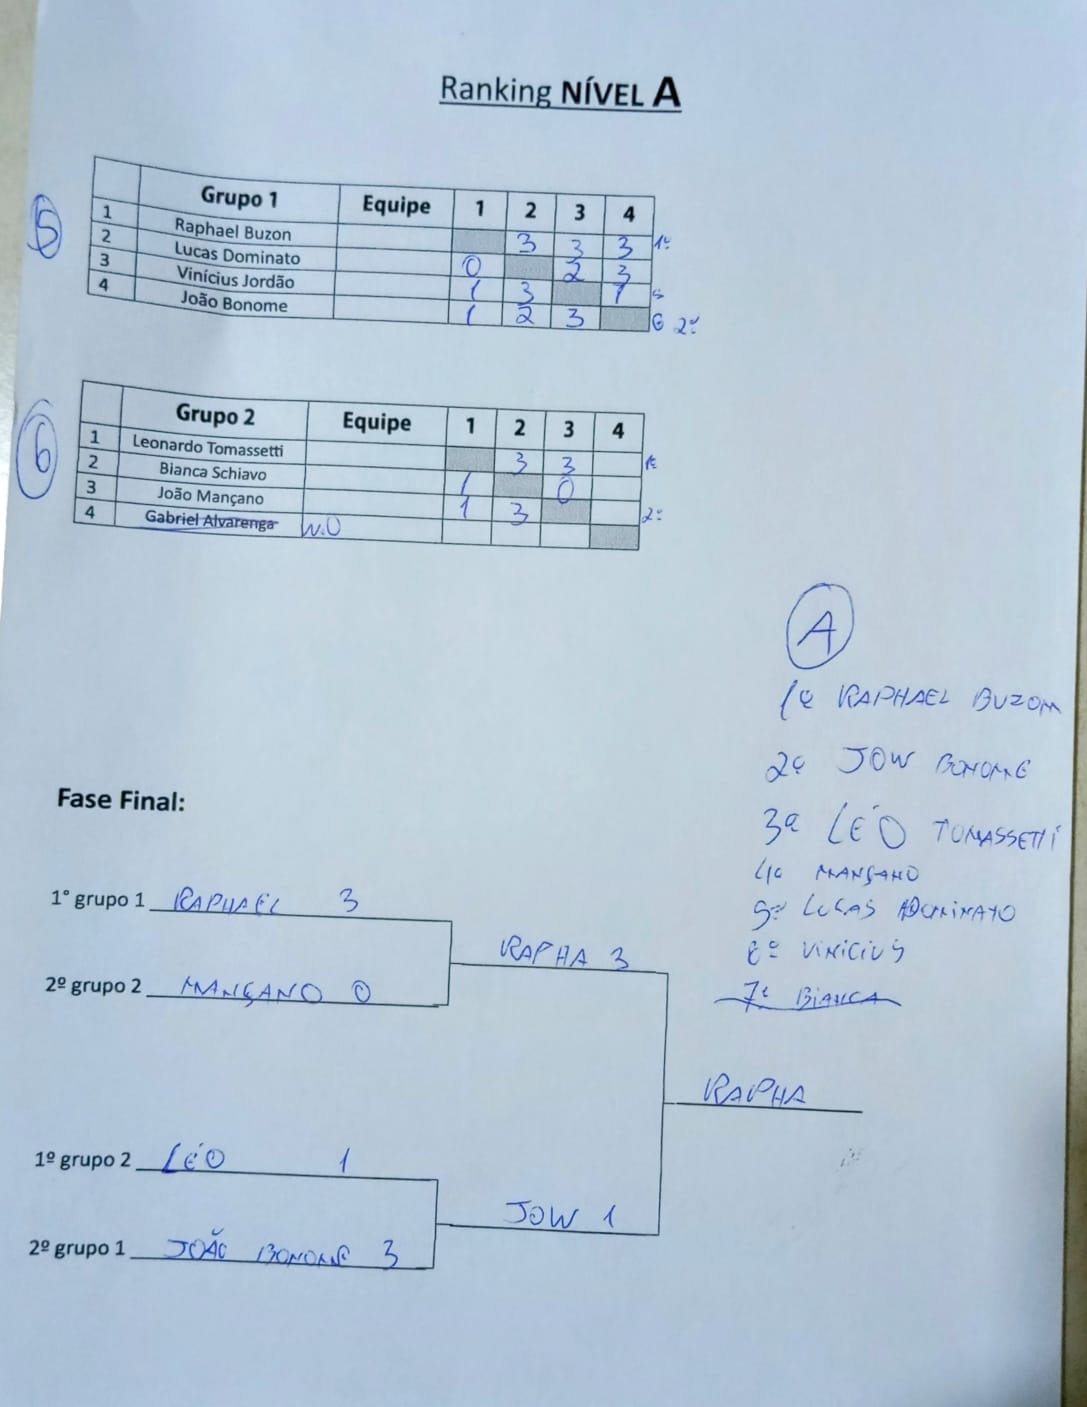 Ranking NÍVEL A
5
Grupo 1 Equipe 1 2 3 4
1 Raphael Buzon 3 3 3 1º
2 Lucas Dominato 0 2 3
3 Vinícius Jordão 1 3 1 5
4 João Bonome 1 2 3 6 2º
6
Grupo 2 Equipe 1 2 3 4
1 Leonardo Tomassetti 3 3 1º
2 Bianca Schiavo 1 0
3 João Mançano 1 3 2º
4 Gabriel Alvarenga W.O
A
1º RAPHAEL BUZOM
2º JOW BONOME
3º LÉO TOMASSETTI
4º MANÇANO
5º LUCAS DOMINATO
6º VINICIUS
7º BIANCA
Fase Final:
1° grupo 1 RAPHAEL 3
RAPHA 3
2º grupo 2 MANÇANO 0
RAPHA
1º grupo 2 LÉO 1
JOW 1
2º grupo 1 JOÃO BONOME 3